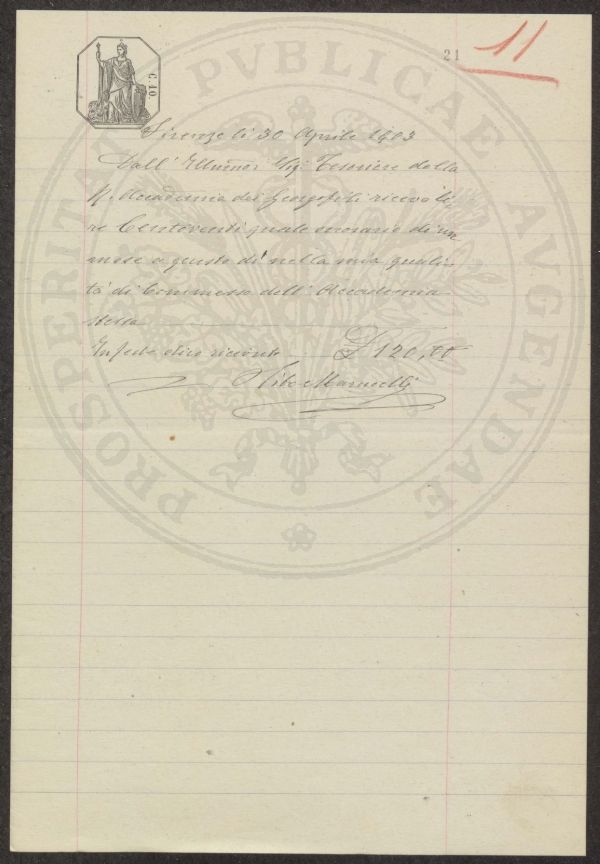 21 11
C. 10
PROSPERITATI PVBLICAE AVGENDAE
Firenze li 30 Aprile 1903
Dall' Illmo Sig: Tesoriere della
R. Accademia dei Georgofili ricevo li,
re Centoventi quale onorario di un
mese a questo dì nella mia quali,
tà di Commesso dell' Accademia
stessa
In fede dico ricevute £ 120,00